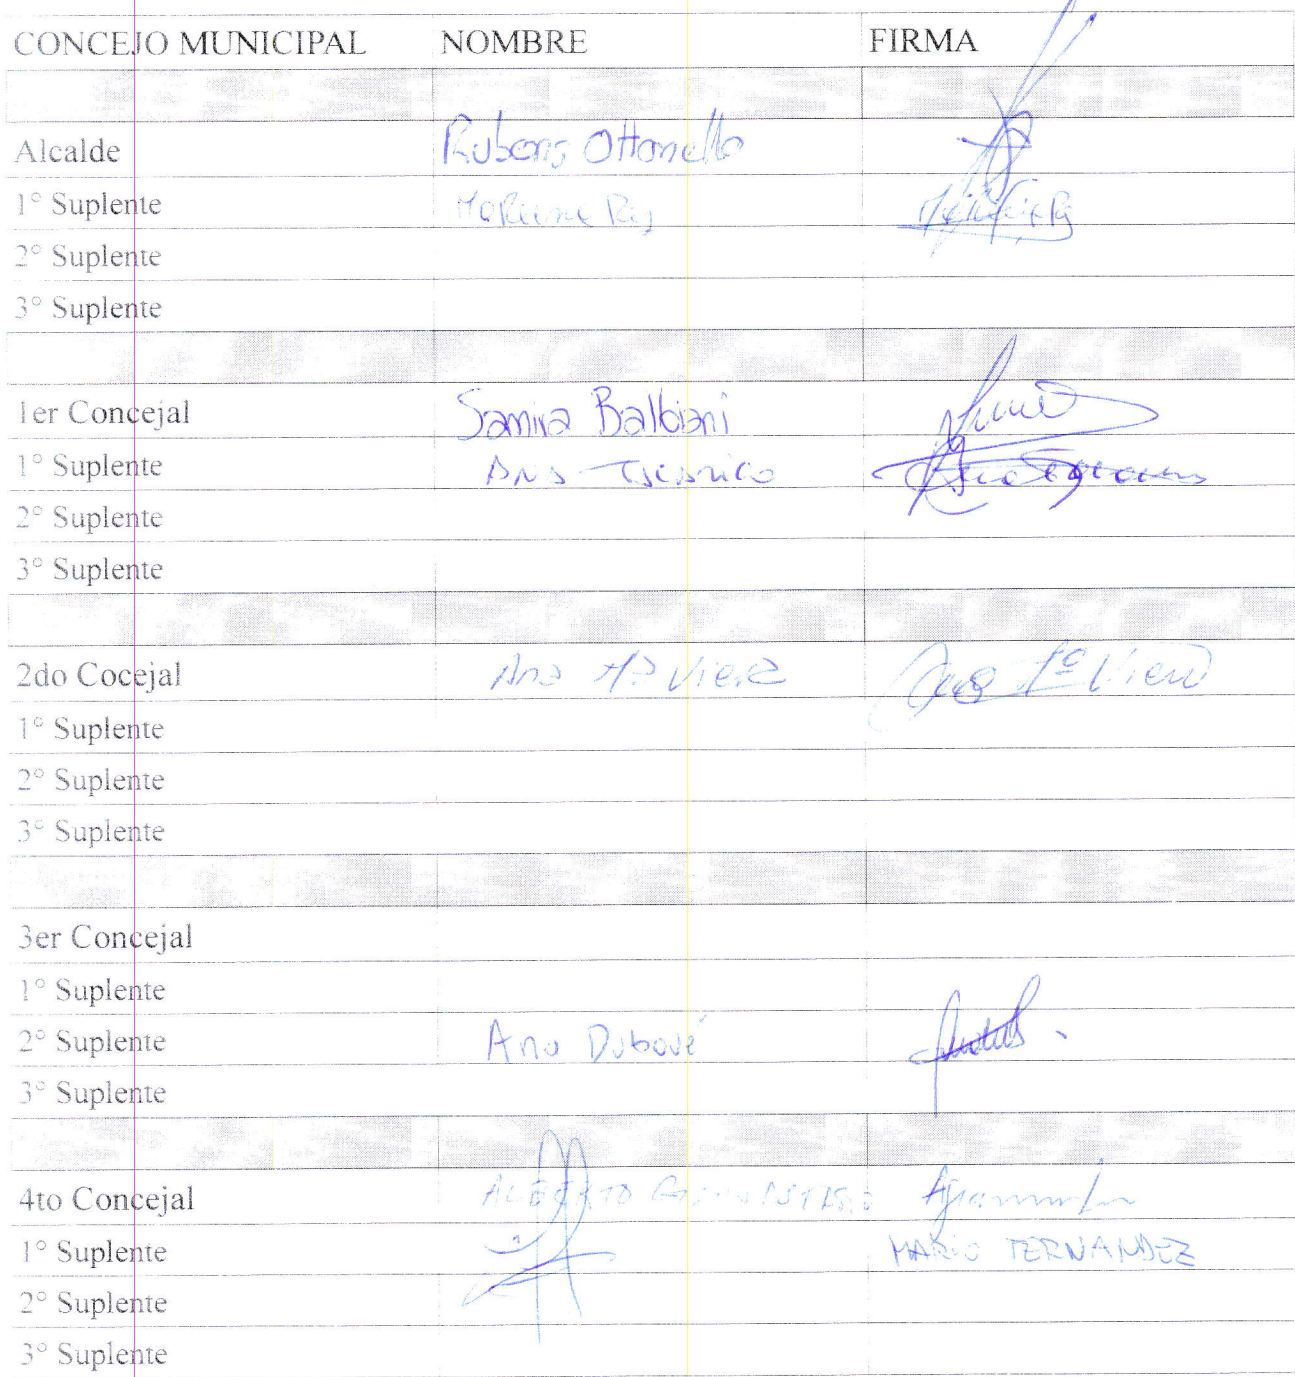 CONCEJO MUNICIPAL NOMBRE FIRMA
Alcalde Rubens Ottonello
1° Suplente
2° Suplente
3° Suplente
1er Concejal Samira Balbiani
1° Suplente Ana
2° Suplente
3° Suplente
2do Cocejal Ana Mª Viera Ana Mª Viera
1° Suplente
2° Suplente
3° Suplente
3er Concejal
1° Suplente
2° Suplente Ana Dubové
3° Suplente
4to Concejal ALBERTO
1° Suplente MARIO FERNANDEZ
2° Suplente
3° Suplente